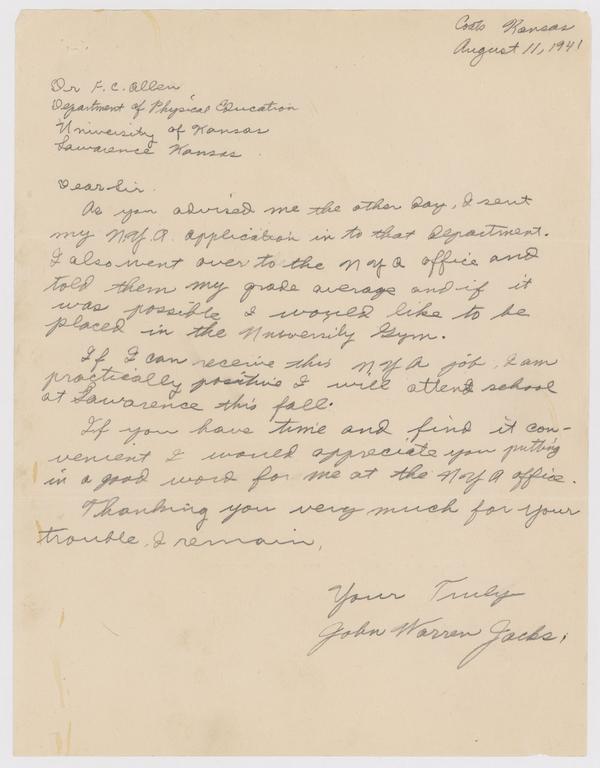 Coats Kansas
August 11, 1941
Dr F. C. Allen
Department of Physical Education
University of Kansas
Lawarence Kansas.
Dear Sir.
As you advised me the other day, I sent
my N.Y.A. application in to that department.
I also went over to the N Y A office and
told them my grade average and if it
was possible I would like to be
placed in the University Gym.
If I can receive this N Y A job, I am
practically positive I will attend school
at Lawarence this fall.
If you have time and find it con-
venient I would appreciate you putting
in a good word for me at the N Y A office.
Thanking you very much for your
trouble, I remain,
Your Truly
John Warren Jacks.